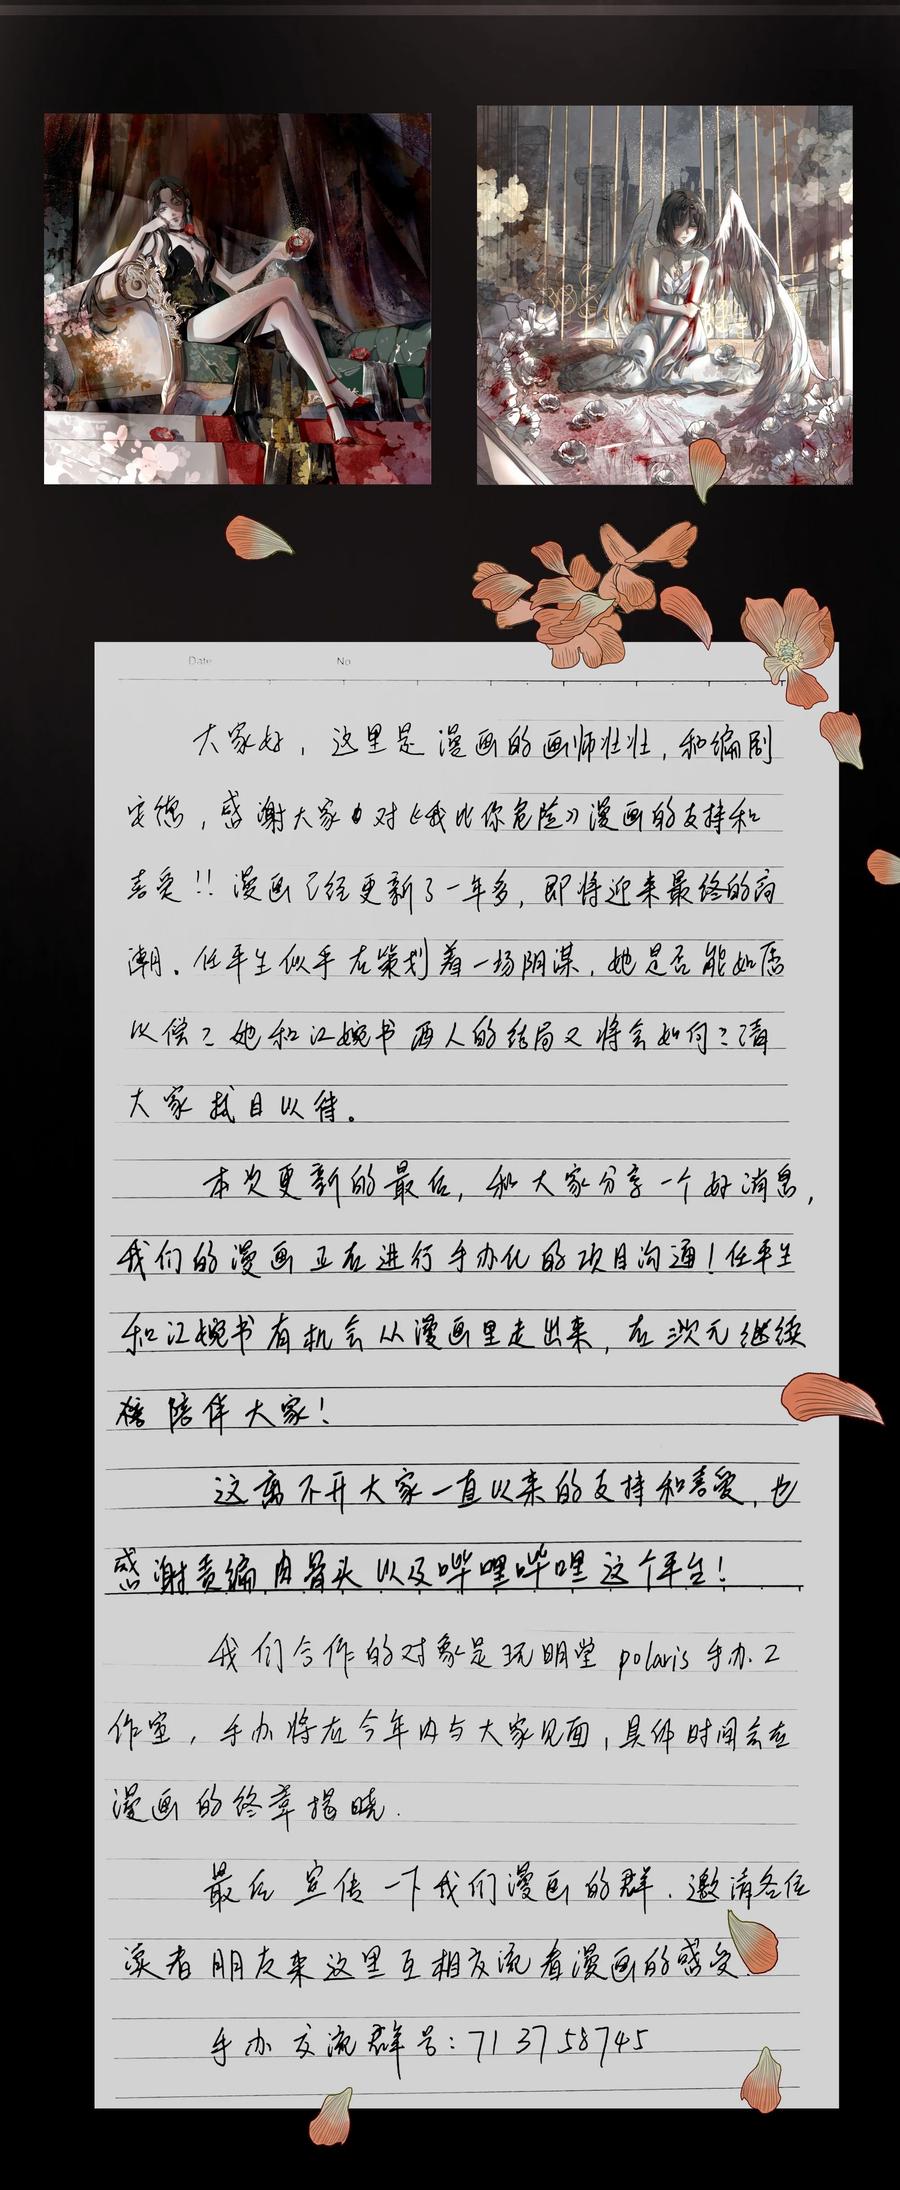 Date No
大家好，这里是漫画的画师壮壮，和编剧
安德，感谢大家对《我比你危险》漫画的支持和
喜爱！！漫画已经更新了一年多，即将迎来最终的高
潮。任平生似乎在策划着一场阴谋，她是否能如愿
以偿？她和江婉书两人的结局又将会如何？请
大家拭目以待。
本次更新的最后，和大家分享一个好消息，
我们的漫画正在进行手办化的项目沟通！任平生
和江婉书有机会从漫画里走出来，在三次元继续
陪伴大家！
这离不开大家一直以来的支持和喜爱，也
感谢责编肉骨头以及哔哩哔哩这个平台！
我们合作的对象是玩明堂 polaris 手办工
作室，手办将在今年内与大家见面，具体时间会在
漫画的终章揭晓.
最后宣传一下我们漫画的群．邀请各位
读者朋友来这里互相交流看漫画的感受.
手办交流群号：713758745